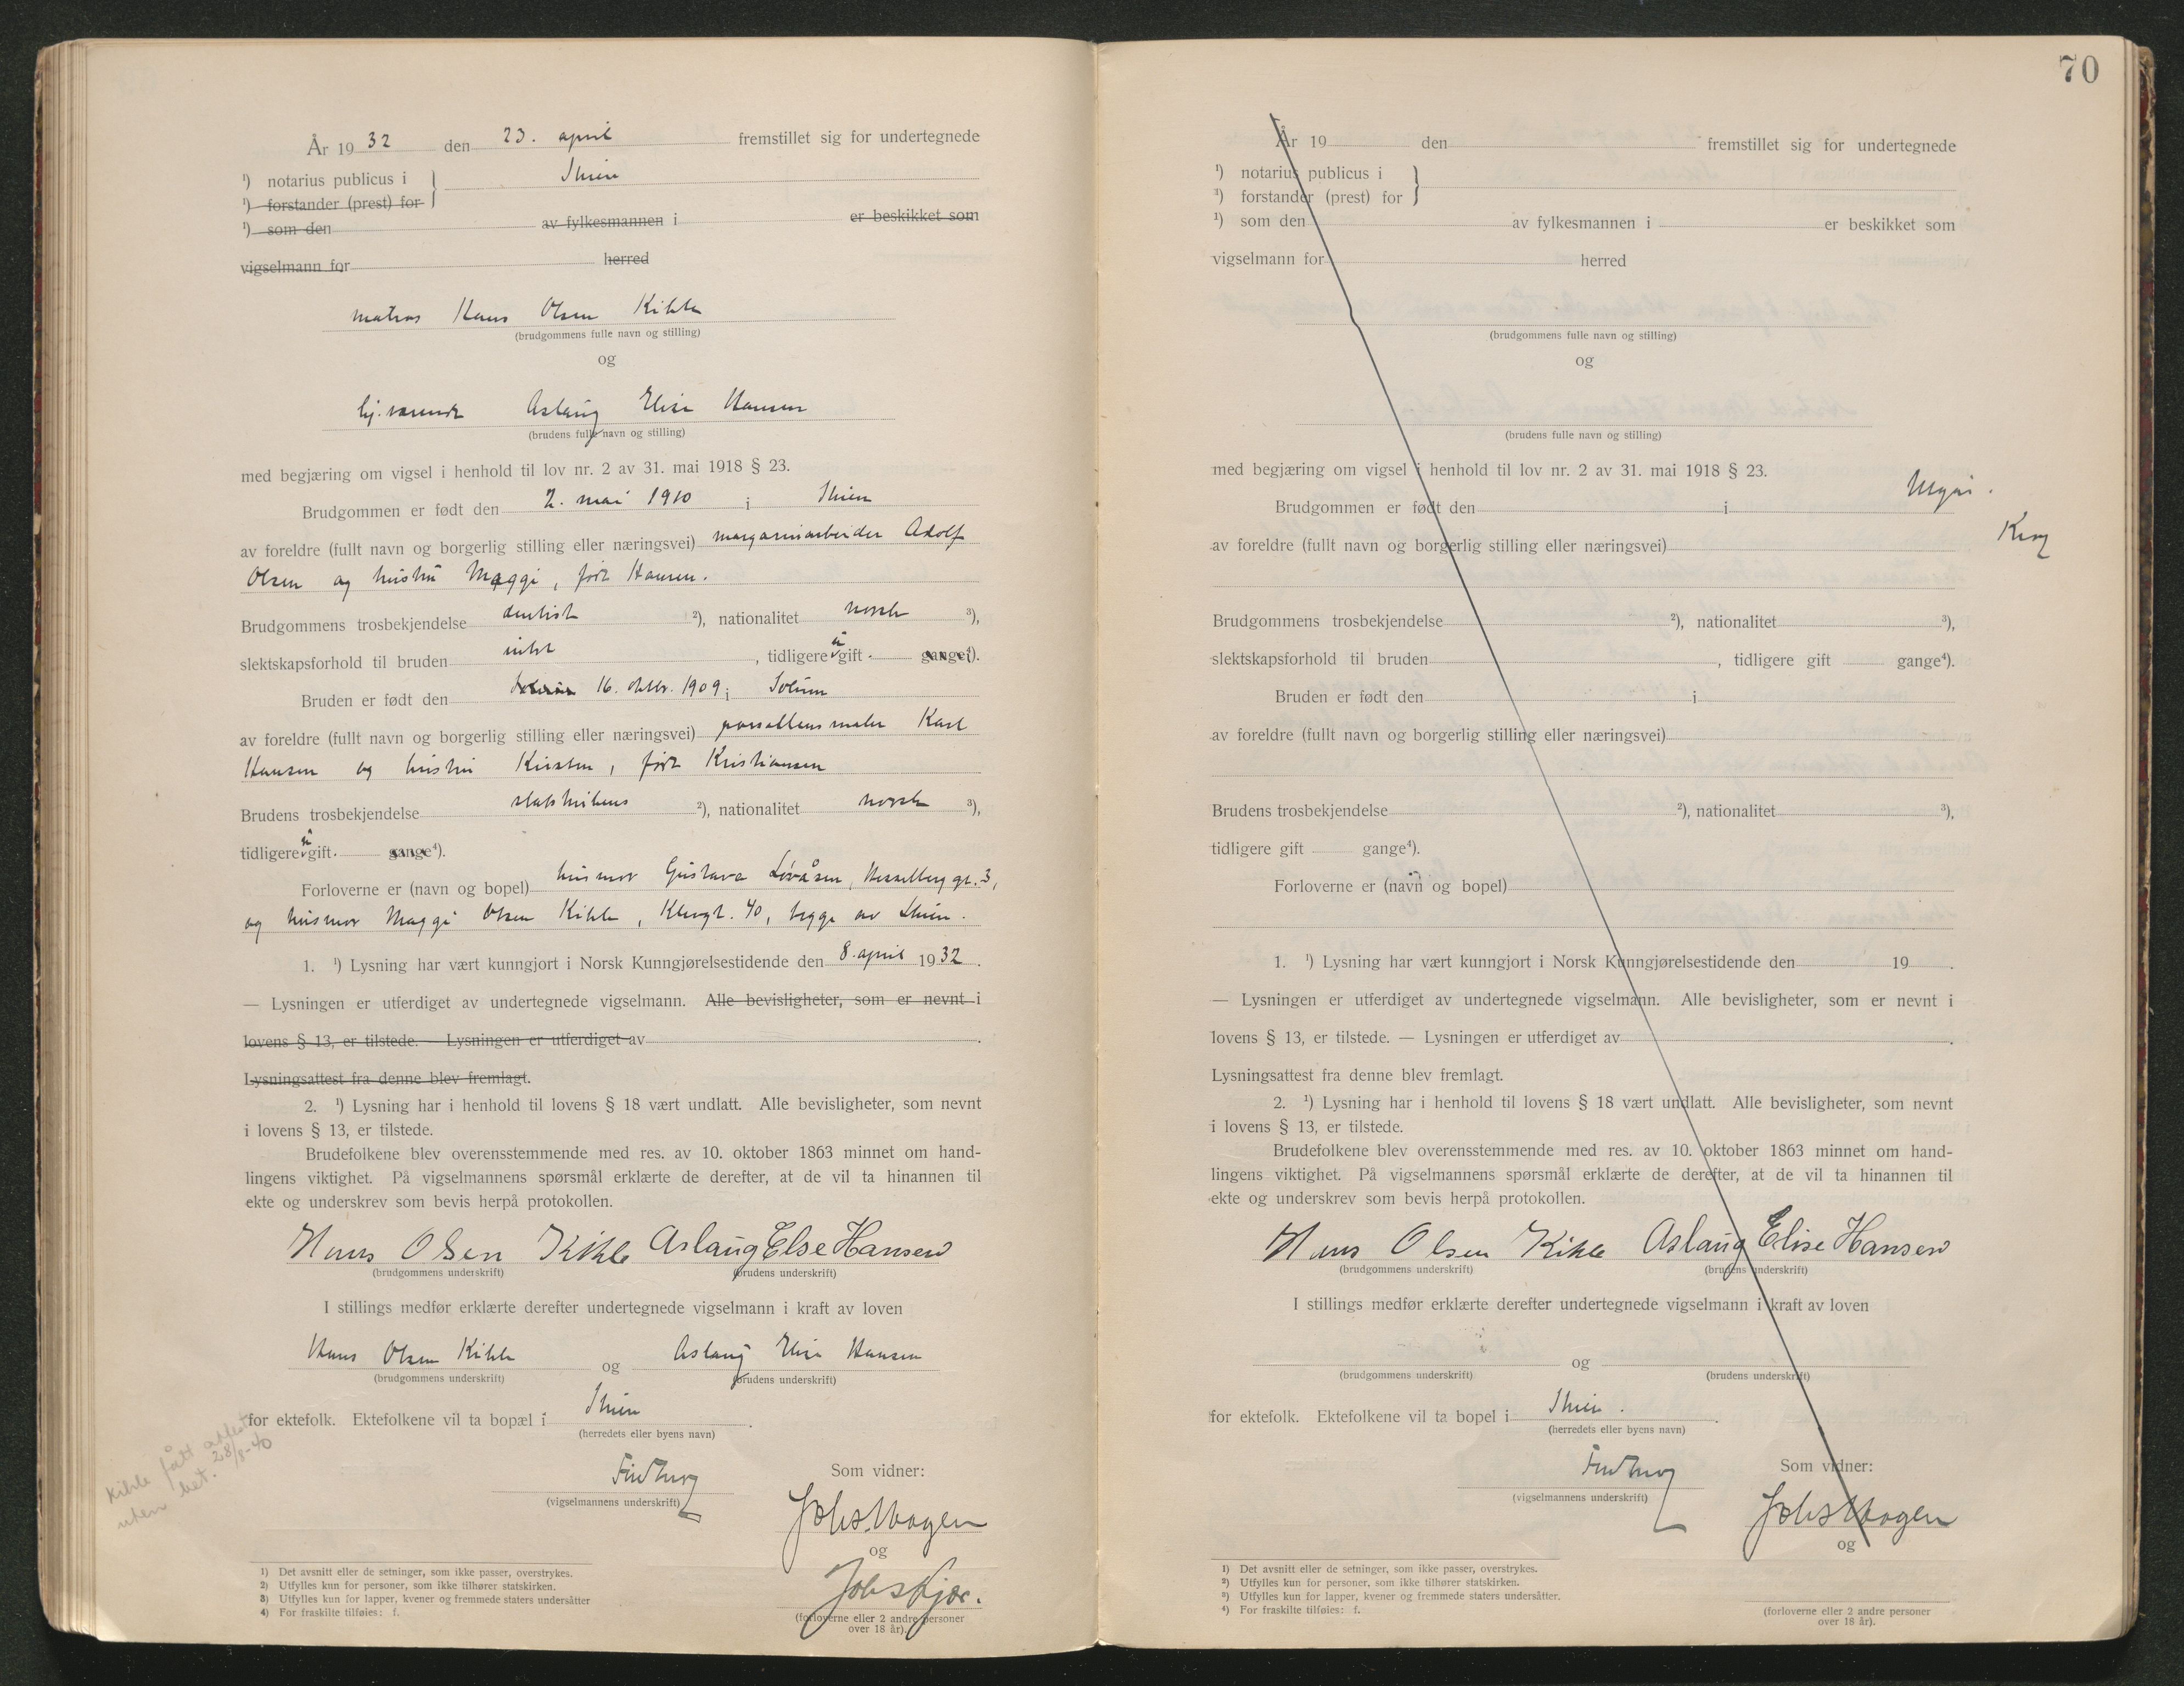 År 19 32 den 23. april fremstillet sig for undertegnede
¹) notarius publicus i } Skien
¹) forstander (prest) for
¹) som den av fylkesmannen i er beskikket som
vigselmann for herred
matros Hans Olsen Kihle
(brudgommens fulle navn og stilling)
og
hj.værende Aslaug Elise Hansen
(brudens fulle navn og stilling)
med begjæring om vigsel i henhold til lov nr. 2 av 31. mai 1918 § 23.
Brudgommen er født den 2. mai 1910 i Skien
av foreldre (fullt navn og borgerlig stilling eller næringsvei) margarinarbeider Adolf
Olsen og hustru Maggi, født Hansen.
Brudgommens trosbekjendelse ²), nationalitet norsk ³),
slektskapsforhold til bruden intet , tidligere u gift gange⁴).
Bruden er født den 16. oktbr. 1909 i Solum
av foreldre (fullt navn og borgerlig stilling eller næringsvei) porsellensmaler Karl
Hansen og hustru Kirsten, født Kristiansen
Brudens trosbekjendelse statskirkens ²), nationalitet norsk ³),
tidligere u gift gange⁴).
Forloverne er (navn og bopel) husmor Gustava Løvåsen, Hesselberg gt. 3,
og husmor Maggi Olsen Kihle, Klevgt. 40, begge av Skien.
1. ¹) Lysning har vært kunngjort i Norsk Kunngjørelsestidende den 8. april 19 32.
— Lysningen er utferdiget av undertegnede vigselmann. Alle bevisligheter, som er nevnt i
lovens § 13, er tilstede. — Lysningen er utferdiget av
Lysningsattest fra denne blev fremlagt.
2. ¹) Lysning har i henhold til lovens § 18 vært undlatt. Alle bevisligheter, som nevnt
i lovens § 13, er tilstede.
Brudefolkene blev overensstemmende med res. av 10. oktober 1863 minnet om hand-
lingens viktighet. På vigselmannens spørsmål erklærte de derefter, at de vil ta hinannen til
ekte og underskrev som bevis herpå protokollen.
Hans Olsen Kihle Aslaug Else Hansen
(brudgommens underskrift) (brudens underskrift)
I stillings medfør erklærte derefter undertegnede vigselmann i kraft av loven
Hans Olsen Kihle og Aslaug Elise Hansen
(brudgommens underskrift) (brudens underskrift)
for ektefolk. Ektefolkene vil ta bopæl i Skien.
(herredets eller byens navn)
Kihle fått attest
uten bet. 28/8-40
Som vidner:
(vigselmannens underskrift)
og
(forloverne eller 2 andre personer
over 18 år).
1) Det avsnitt eller de setninger, som ikke passer, overstrykes.
2) Utfylles kun for personer, som ikke tilhører statskirken.
3) Utfylles kun for lapper, kvener og fremmede staters undersåtter
4) For fraskilte tilføies: f.
70
År 19 den fremstillet sig for undertegnede
¹) notarius publicus i }
³) forstander (prest) for
¹) som den av fylkesmannen i er beskikket som
vigselmann for herred
(brudgommens fulle navn og stilling)
og
(brudens fulle navn og stilling)
med begjæring om vigsel i henhold til lov nr. 2 av 31. mai 1918 § 23.
Utgår.
Brudgommen er født den i
av foreldre (fullt navn og borgerlig stilling eller næringsvei)
Brudgommens trosbekjendelse ²), nationalitet ³),
slektskapsforhold til bruden , tidligere gift gange⁴).
Bruden er født den i
av foreldre (fullt navn og borgerlig stilling eller næringsvei)
Brudens trosbekjendelse ²), nationalitet ³),
tidligere gift gange⁴).
Forloverne er (navn og bopel)
1. ¹) Lysning har vært kunngjort i Norsk Kunngjørelsestidende den 19 .
— Lysningen er utferdiget av undertegnede vigselmann. Alle bevisligheter, som er nevnt i
lovens § 13, er tilstede. — Lysningen er utferdiget av .
Lysningsattest fra denne blev fremlagt.
2. ¹) Lysning har i henhold til lovens § 18 vært undlatt. Alle bevisligheter, som nevnt
i lovens § 13, er tilstede.
Brudefolkene blev overensstemmende med res. av 10. oktober 1863 minnet om hand-
lingens viktighet. På vigselmannens spørsmål erklærte de derefter, at de vil ta hinannen til
ekte og underskrev som bevis herpå protokollen.
Hans Olsen Kihle Aslaug Elise Hansen
(brudgommens underskrift) (brudens underskrift)
I stillings medfør erklærte derefter undertegnede vigselmann i kraft av loven
og
(brudgommens underskrift) (brudens underskrift)
for ektefolk. Ektefolkene vil ta bopel i Skien.
(herredets eller byens navn)
Som vidner:
(vigselmannens underskrift)
og
(forloverne eller 2 andre personer
over 18 år).
1) Det avsnitt eller de setninger, som ikke passer, overstrykes.
2) Utfylles kun for personer, som ikke tilhører statskirken.
3) Utfylles kun for lapper, kvener og fremmede staters undersåtter.
4) For fraskilte tilføies: f.